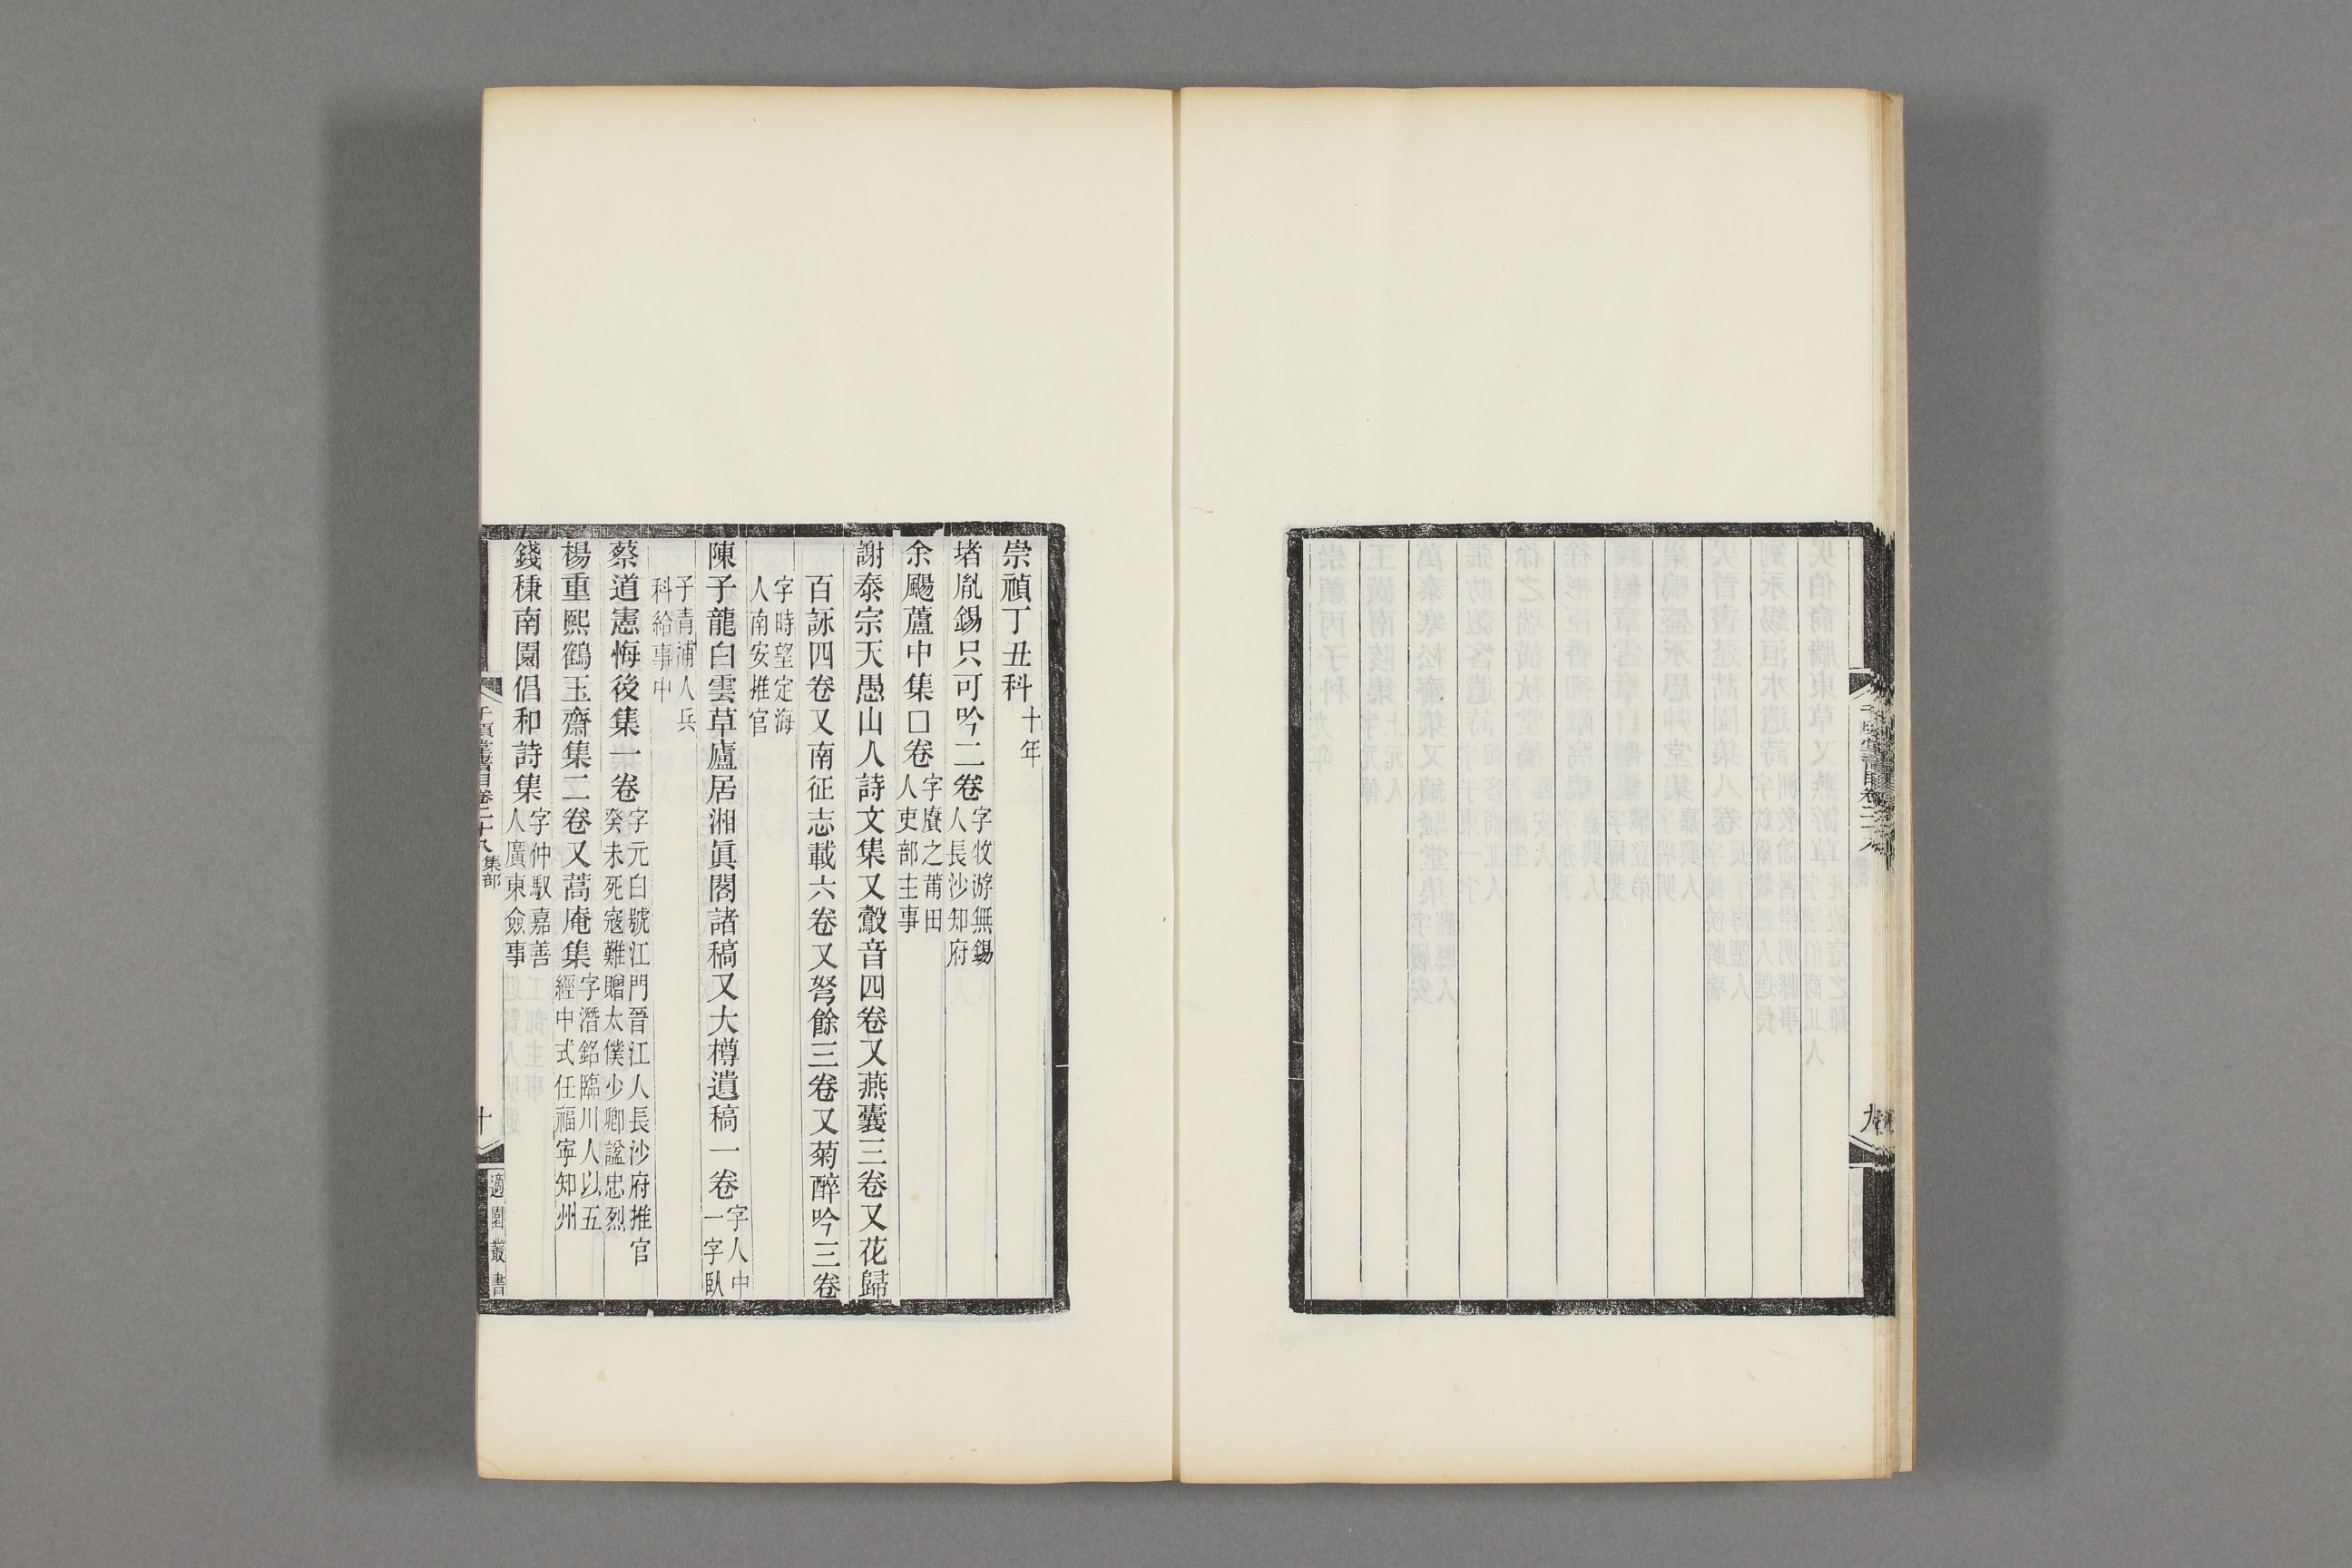 崇禎丁丑科十年
堵胤錫只可吟二卷字牧游無錫人長沙知府
余颺蘆中集口卷字賡之莆田人吏部主事
謝泰宗天愚山人詩文集又鷇音四卷又燕囊三卷又花歸
百詠四卷又南征志載六卷又弩餘三卷又菊醉吟三卷
字時望定海人南安推官
陳子龍白雲草廬居湘眞閣諸稿又大樽遺稿一卷字人中一字臥
子青浦人兵科給事中
蔡道憲悔後集一卷字元白號江門晉江人長沙府推官癸未死寇難贈太僕少卿諡忠烈
楊重熙鶴玉齋集二卷又蒿庵集字潛銘臨川人以五經中式任福寧知州
錢棅南園倡和詩集字仲馭嘉善人廣東僉事
千頃堂書目卷二十八集部
十
適園叢書
九